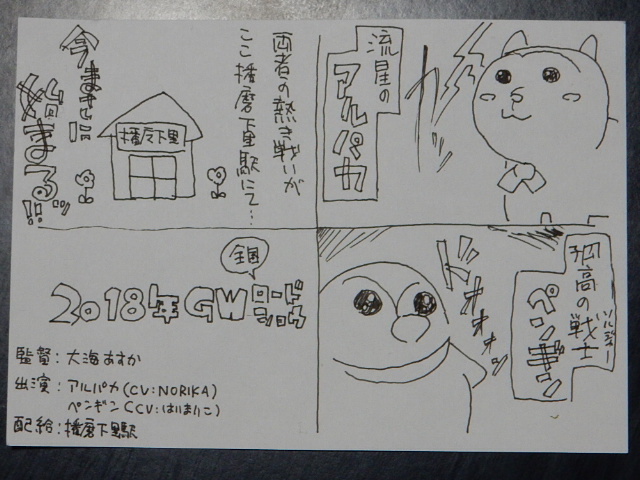 流星の
アルパカ
カッ
孤高の戦士
ソルジャー
ペンギン
ドオオオン
両者の熱き戦いが
ここ播磨下里駅にて…
播磨下里
今まさに
始まる!!
全国
2018年GWロードショウ
監督:大海あすか
出演:アルパカ(CV:NORIKA)
ペンギン(CV:はりまりこ)
配給:播磨下里駅